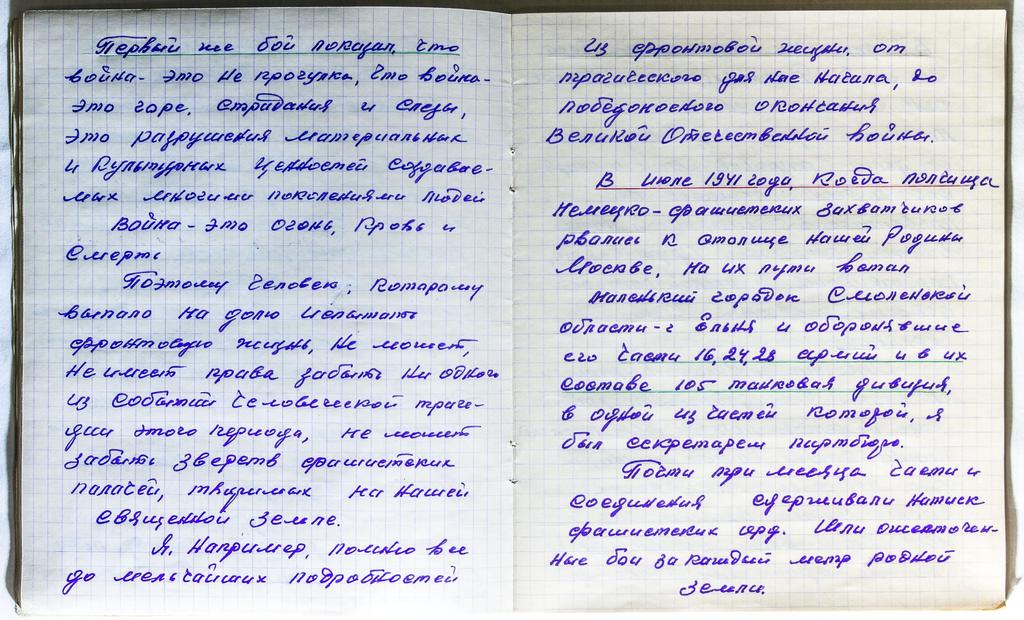 Первый же бой показал, что
война - это не прогулка, что война -
это горе, страдания и слезы,
это разрушения материальных
и культурных ценностей создавае-
мых многими поколениями людей
Война - это огонь, кровь и
смерть
Поэтому человек, которому
выпало на долю испытать
фронтовую жизнь, не может,
не имеет права забыть ни одного
из событий человеческой траге-
дии этого периода, не может
забыть зверств фашистских
палачей, творимых на нашей
священной земле.
Я, например, помню все
до мельчайших подробностей
из фронтовой жизни, от
трагического для нас начала, до
победоносного окончания
Великой Отечественной войны.
В июле 1941 года, когда полчища
немецко-фашистских захватчиков
рвались к столице нашей Родины
Москве, на их пути встал
маленький городок Смоленской
области - г Ельня и оборонявшие
его части 16, 24, 28 армий и в их
составе 105 танковая дивизия,
в одной из частей которой, я
был секретарем партбюро.
Почти три месяца части и
соединения сдерживали натиск
фашистских орд. Шли ожесточен-
ные бои за каждый метр родной
земли.